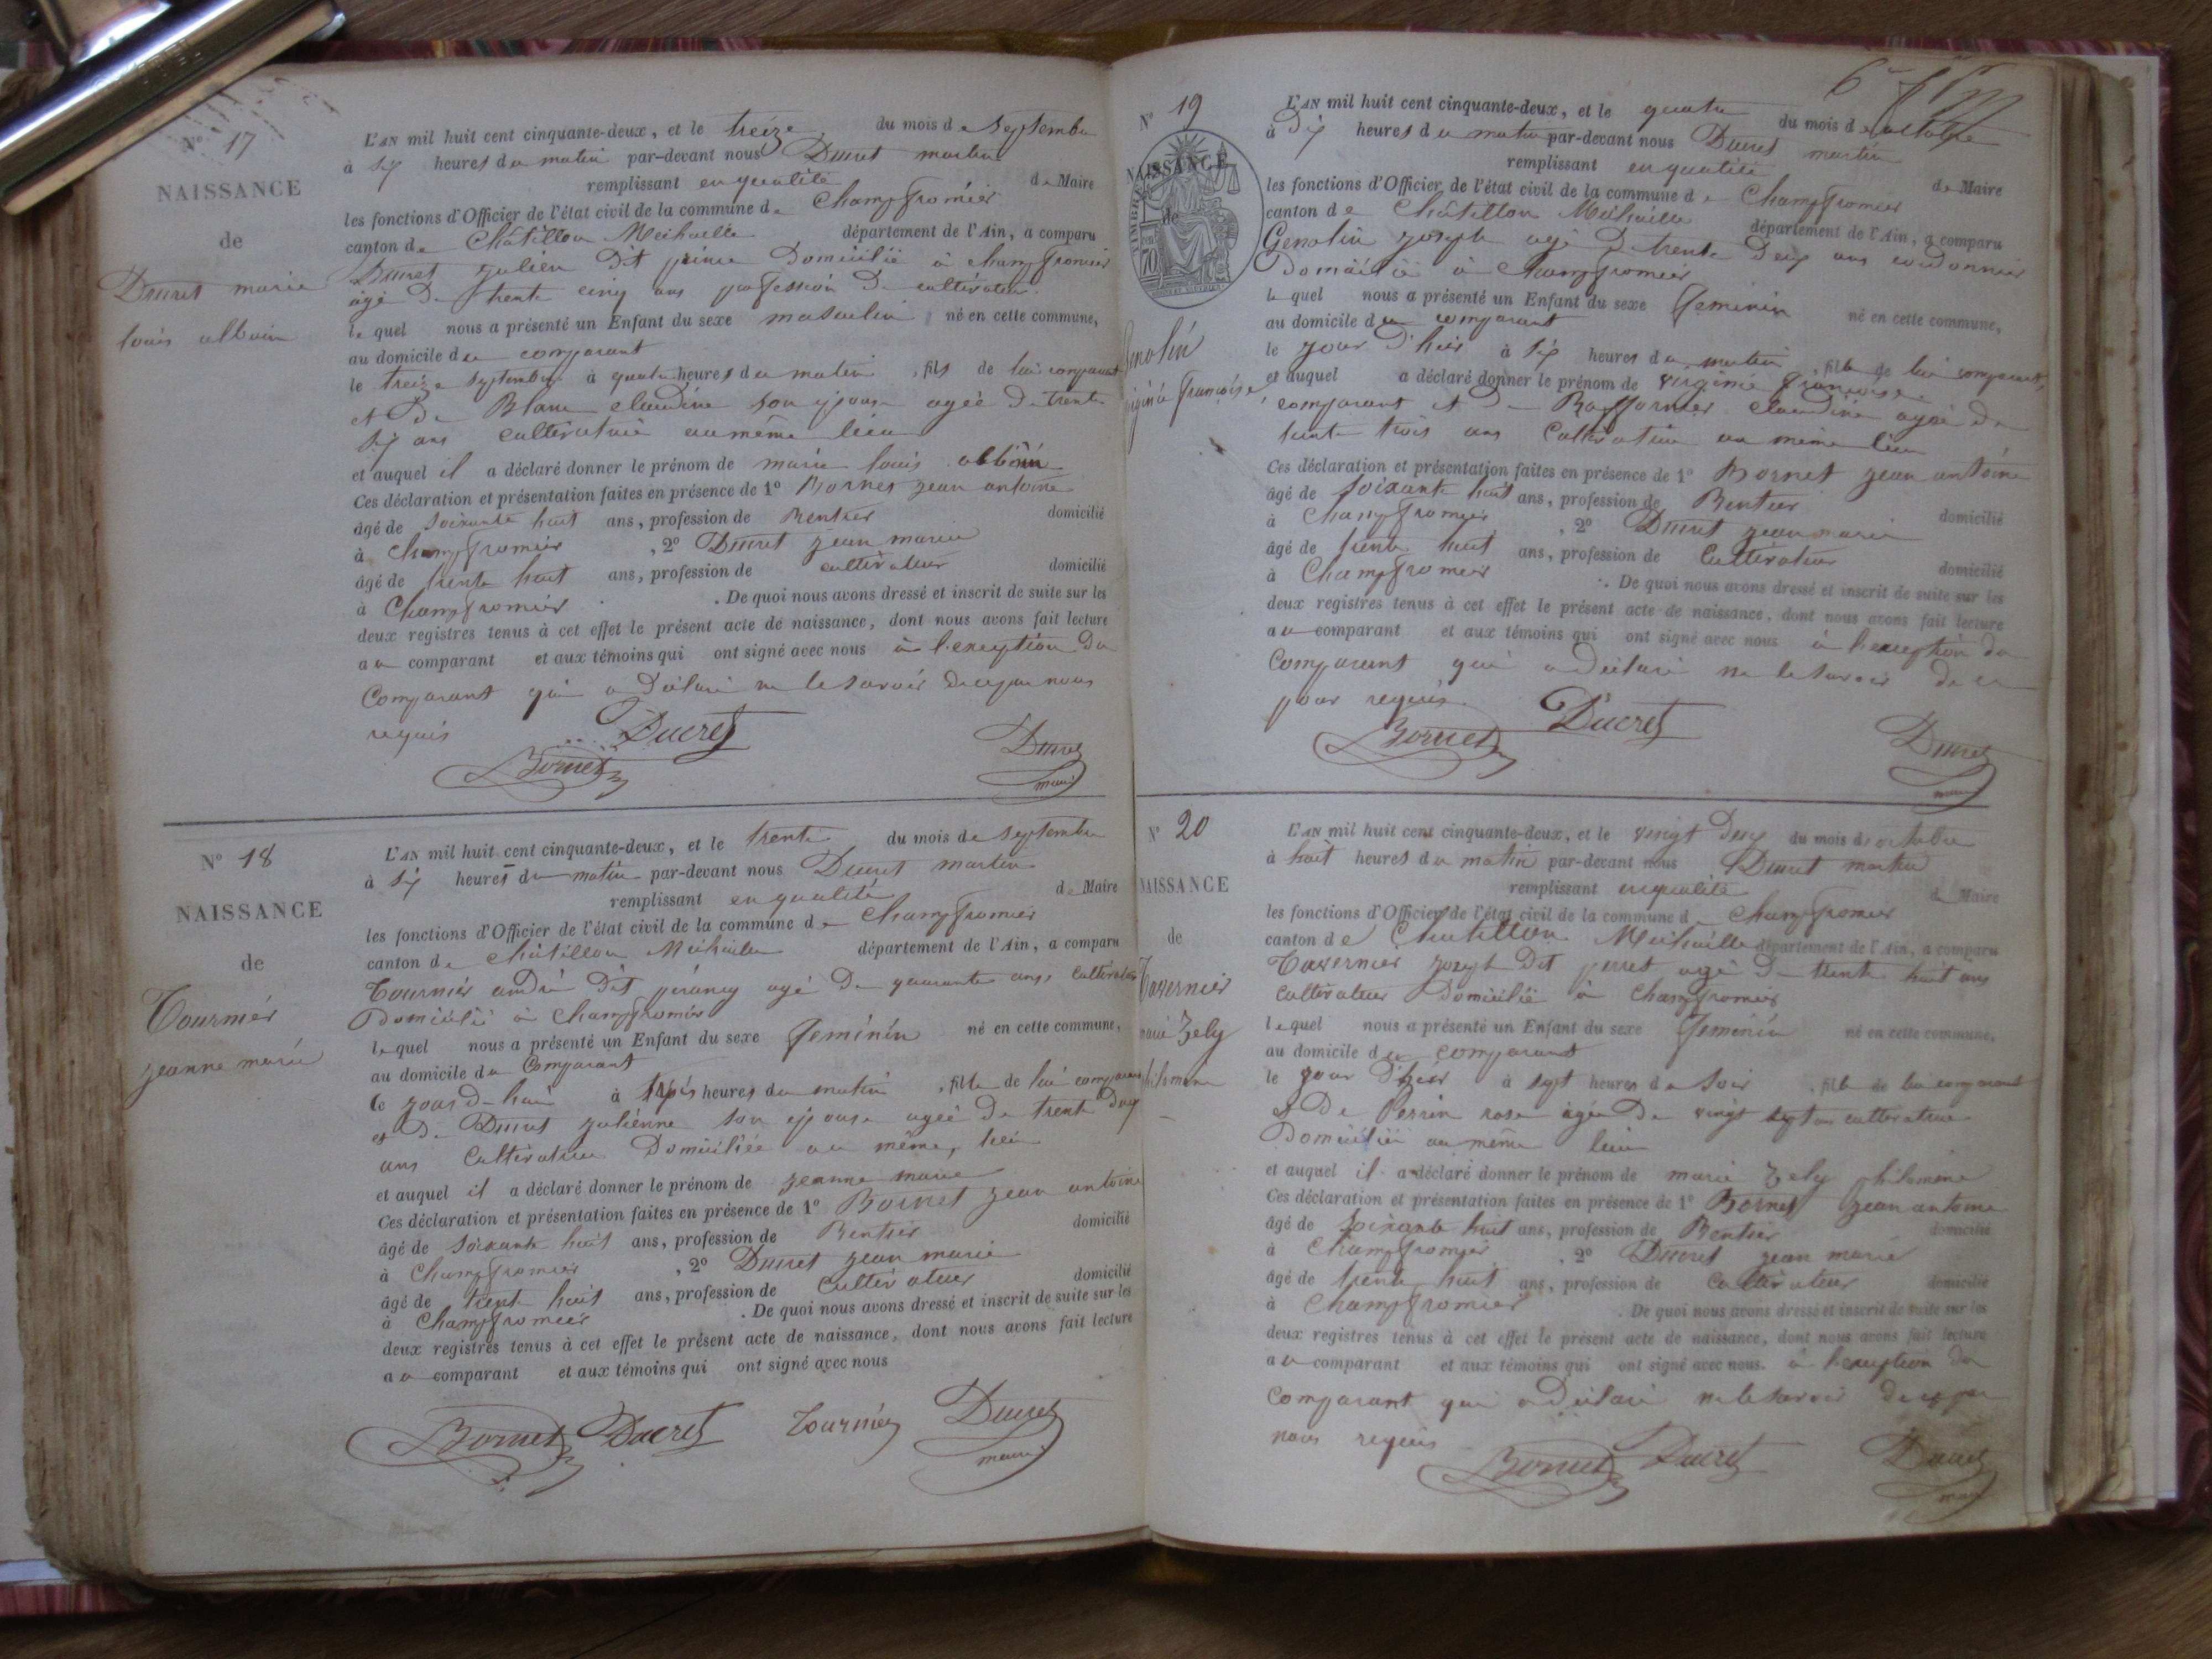 N° 17
NAISSANCE
de
Ducret marie
louis albain
L'AN mil huit cent cinquante-deux, et le treize du mois de septembre
à six heures du matin par-devant nous Ducret martin
remplissant en qualité de Maire
les fonctions d'Officier de l'état civil de la commune de Champfromier
canton de Châtillon Michaille département de l'Ain, a comparu
Ducret julien dit prince Domicilié à champfromier
âgé De trente cinq ans profession De cultivateur
lequel nous a présenté un Enfant du sexe masculin né en cette commune,
au domicile du comparant
le treize septembre à quatre heures du matin, fils de lui comparant
et De Blanc claudine son epouse agée De trente
six ans cultivatrice au même lieu
et auquel il a déclaré donner le prénom de marie louis albain
Ces déclaration et présentation faites en présence de 1° Bornet jean antoine
âgé de soixante huit ans, profession de Rentier domicilié
à champfromier, 2° Ducret jean marie
âgé de trente huit ans, profession de cultivateur domicilié
à Champfromier. De quoi nous avons dressé et inscrit de suite sur les
deux registres tenus à cet effet le présent acte de naissance, dont nous avons fait lecture
au comparant et aux témoins qui ont signé avec nous à l'exception du
Comparant qui a Déclaré ne le savoir de ce par nous
requis
Ducret
Bornet
Ducret
maire
N° 18
NAISSANCE
de
Tournier
jeanne marie
L'AN mil huit cent cinquante-deux, et le trente du mois de septembre
à six heures du matin par-devant nous Ducret martin
remplissant en qualité de Maire
les fonctions d'Officier de l'état civil de la commune de Champfromier
canton de châtillon Michaille département de l'Ain, a comparu
Tournier andré Dit agé De quarante ans, cultivateur
Domicilié à Champfromier
lequel nous a présenté un Enfant du sexe feminin né en cette commune,
au domicile du Comparant
le jour d'hui à trois heures du matin, fille de lui comparant
et De Ducret julienne son epouse agée De trente Deux
ans Cultivatrice Domiciliée au même lieu
et auquel il a déclaré donner le prénom de jeanne marie
Ces déclaration et présentation faites en présence de 1° Bornet jean antoine
âgé de soixante huit ans, profession de Rentier domicilié
à Champfromier, 2° Ducret jean marie
âgé de trente huit ans, profession de cultivateur domicilié
à Champfromier. De quoi nous avons dressé et inscrit de suite sur les
deux registres tenus à cet effet le présent acte de naissance, dont nous avons fait lecture
au comparant et aux témoins qui ont signé avec nous
Bornet Ducret Tournier Ducret
maire
N° 19
NAISSANCE
de
TIMBRE
70
Genolin
Virginie françoise
L'AN mil huit cent cinquante-deux, et le quatre du mois de octobre
à Dix heures du matin par-devant nous Ducret martin
remplissant en qualité de Maire
les fonctions d'Officier de l'état civil de la commune de Champfromier
canton de Châtillon Michaille département de l'Ain, a comparu
Genolin joseph agé De trente Deux ans cordonnier
Domicilié à Champfromier
lequel nous a présenté un Enfant du sexe feminin né en cette commune,
au domicile du comparant
le jour D'hier à six heures du matin, fille de lui comparant,
et auquel a déclaré donner le prénom de virginie françoise
comparant et De Raffournier claudine agée De
trente trois ans Cultivatrice au même lieu
Ces déclaration et présentation faites en présence de 1° Bornet jean antoine
âgé de soixante huit ans, profession de Rentier domicilié
à Champfromier, 2° Ducret jean marie
âgé de trente huit ans, profession de Cultivateur domicilié
à Champfromier. De quoi nous avons dressé et inscrit de suite sur les
deux registres tenus à cet effet le présent acte de naissance, dont nous avons fait lecture
au comparant et aux témoins qui ont signé avec nous à l'exception du
Comparant qui a Déclaré ne le savoir de ce
pour requis.
Bornet Ducret
Ducret
maire
N° 20
NAISSANCE
de
Tavernier
marie Zely
philomene
L'AN mil huit cent cinquante-deux, et le vingt Deux du mois d'octobre
à huit heures du matin par-devant nous Ducret martin
remplissant en qualité de Maire
les fonctions d'Officier de l'état civil de la commune de Champfromier
canton de Chatillon Michaille département de l'Ain, a comparu
Tavernier joseph Dit perret agé De trente huit ans
cultivateur Domicilié à Champfromier
lequel nous a présenté un Enfant du sexe feminin né en cette commune,
au domicile du comparant
le jour D'hier à sept heures du soir, fille de lui comparant
& De Perrin rose agée De vingt sept ans cultivatrice
Domiciliée au même lieu
et auquel il a déclaré donner le prénom de marie Zely philomene
Ces déclaration et présentation faites en présence de 1° Bornet jean antoine
âgé de soixante huit ans, profession de Rentier domicilié
à Champfromier, 2° Ducret jean marie
âgé de trente huit ans, profession de Cultivateur domicilié
à Champfromier. De quoi nous avons dressé et inscrit de suite sur les
deux registres tenus à cet effet le présent acte de naissance, dont nous avons fait lecture
au comparant et aux témoins qui ont signé avec nous. à l'exception du
Comparant qui a Déclaré ne le savoir de ce par
nous requis
Bornet Ducret
Ducret
maire